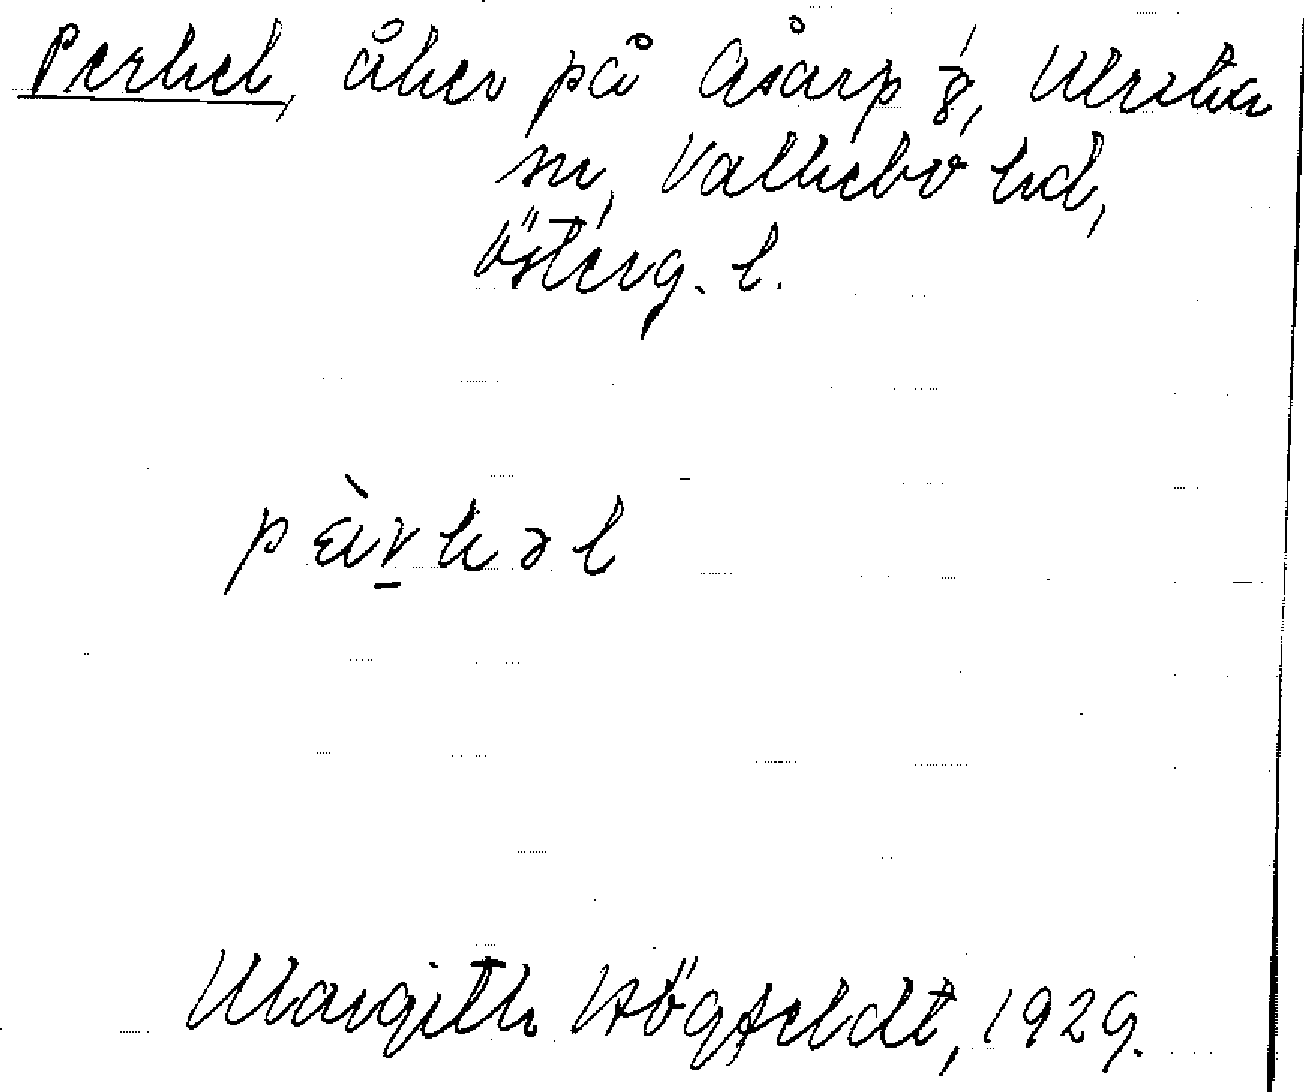 Perkel, åker på Åsarp 1/8, Ulrika
sn, Valkebo hd,
Österg. l.
pæ̀r̠kəl
Margith Högfeldt, 1929.